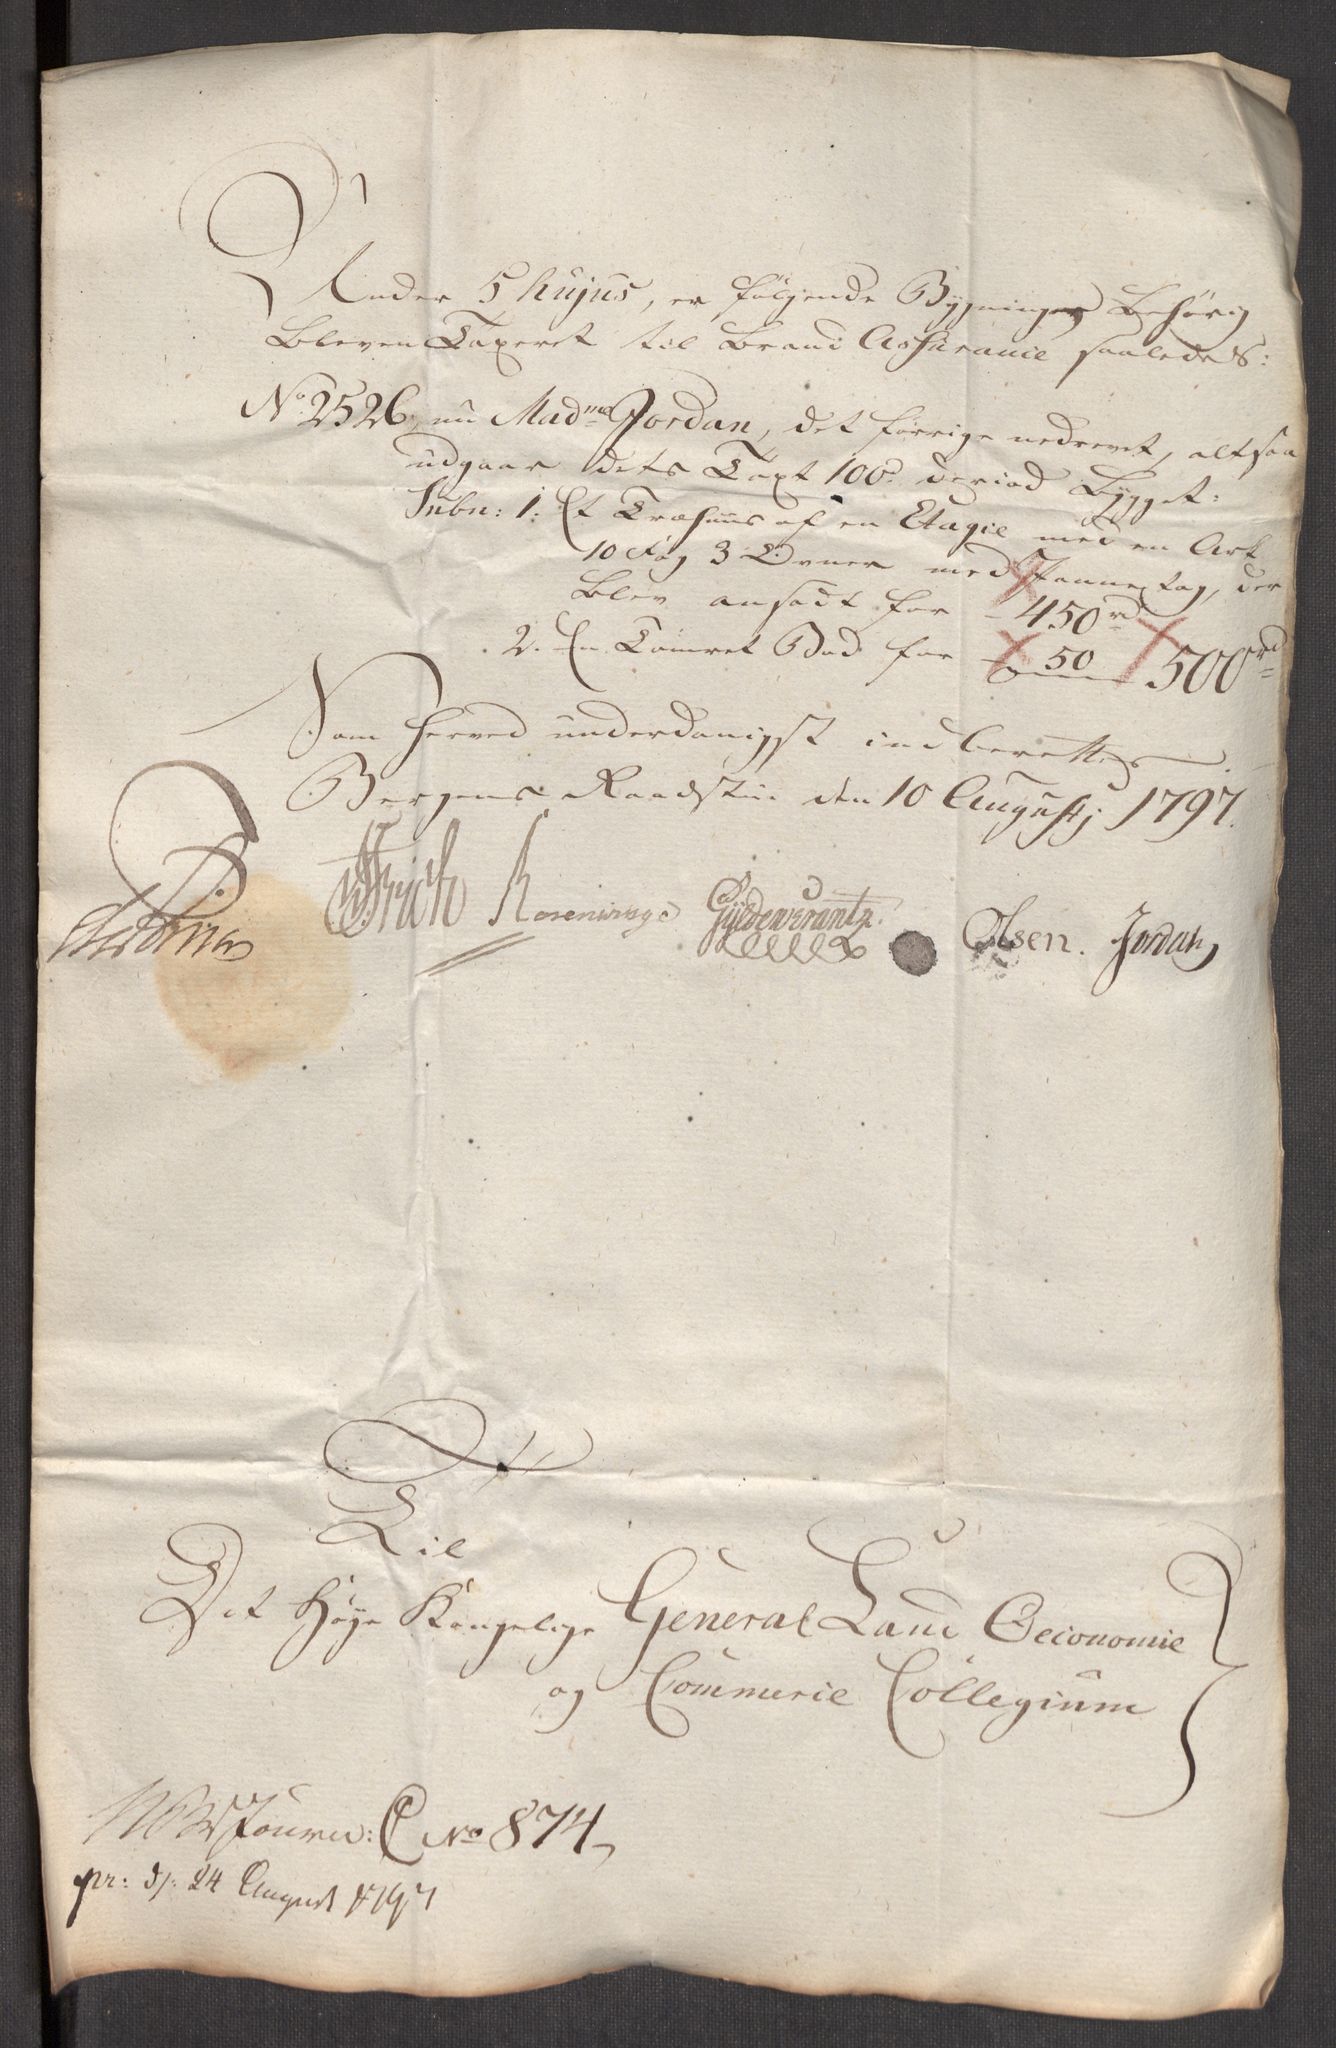 Under 5 hujus, er følgende Bygninger behørig
bleven Taxeret til Brand Assurance saaledes:
No. 2526, nu Madme Jordan, det forrige nedrevet, altsaa
udgaar dets Taxt 100rd. derimod bygget:
Inbn: 1. Et Træhuus af en Etagie med en Ark
10 Fag 3 Ovner med Pannetag, der
blev ansadt for - 450rd
2. En Tømret Bod for - 50 500rd
Som herved underdanigst indberettes.
Bergens Raadstue den 10 Augustj 1797.
Frich Rosenvinge Gyldencrantz. Olsen. Jordan
Til
Det Høye Kongelige General Land Oeconomie
og Commerce Collegium
Journ: C No 874
pr: d: 24 August 1797